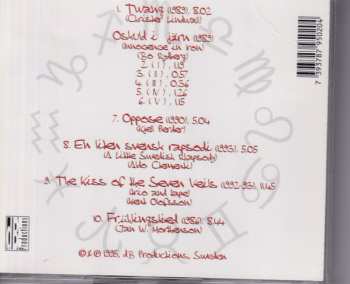 1. Twang (1989) 8.02
(Christer Lindwall)
Oskuld i järn (1983)
(Innocence in iron)
(Bo Rydberg)
2. (I) 1.19
3. (II) 0.57
4. (III) 0.56
5. (IV) 1.26
6. (V) 1.15
7. Oppose (1990) 5.04
8. En liten svensk rapsodi (1993) 5.05
(A Little Swedish Rhapsody)
(Aldo Clementi)
9. The Kiss of the Seven Veils (1992-93) 11.45
(trio and tape)
(Kent Olofsson)
10. Frühlingslied (1986) 8.44
(Jan W. Morthenson)
© & ℗ 1995, dB Productions, Sweden
Productions
7 393787 950204